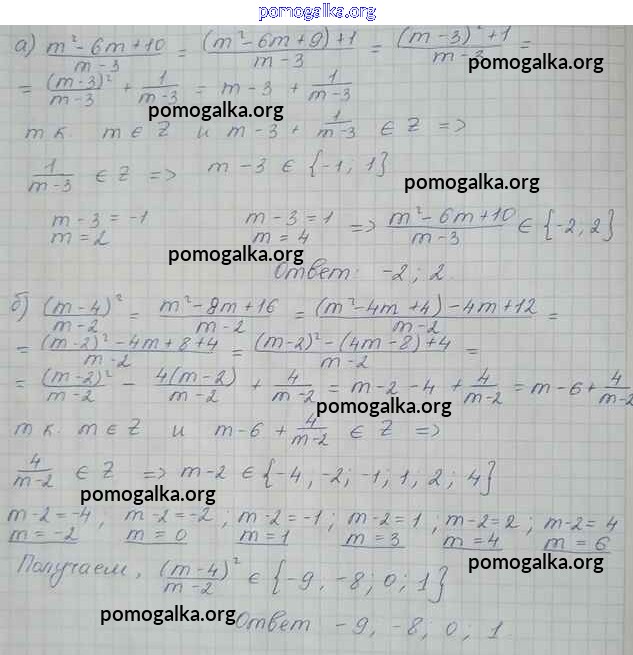 pomogalka.org
а) (m² - 6m + 10)/(m - 3) = ((m² - 6m + 9) + 1)/(m - 3) = ((m - 3)² + 1)/(m - 3) =
pomogalka.org
= (m - 3)²/(m - 3) + 1/(m - 3) = m - 3 + 1/(m - 3)
pomogalka.org
т к. m ∈ Z и m - 3 + 1/(m - 3) ∈ Z =>
1/(m - 3) ∈ Z => m - 3 ∈ {-1; 1}
pomogalka.org
m - 3 = -1 m - 3 = 1 => (m² - 6m + 10)/(m - 3) ∈ {-2, 2}
m = 2 m = 4
pomogalka.org
Ответ: -2; 2.
б) (m - 4)²/(m - 2) = (m² - 8m + 16)/(m - 2) = ((m² - 4m + 4) - 4m + 12)/(m - 2) =
= ((m - 2)² - 4m + 8 + 4)/(m - 2) = ((m - 2)² - (4m - 8) + 4)/(m - 2) =
= (m - 2)²/(m - 2) - 4(m - 2)/(m - 2) + 4/(m - 2) = m - 2 - 4 + 4/(m - 2) = m - 6 + 4/(m - 2)
pomogalka.org
т к. m ∈ Z и m - 6 + 4/(m - 2) ∈ Z =>
4/(m - 2) ∈ Z => m - 2 ∈ {-4, -2; -1; 1, 2; 4}
pomogalka.org
m - 2 = -4, m - 2 = -2; m - 2 = -1; m - 2 = 1; m - 2 = 2; m - 2 = 4
m = -2 m = 0 m = 1 m = 3 m = 4 m = 6
Получаем, (m - 4)²/(m - 2) ∈ {-9, -8; 0; 1}
pomogalka.org
pomogalka.org
Ответ -9, -8; 0; 1